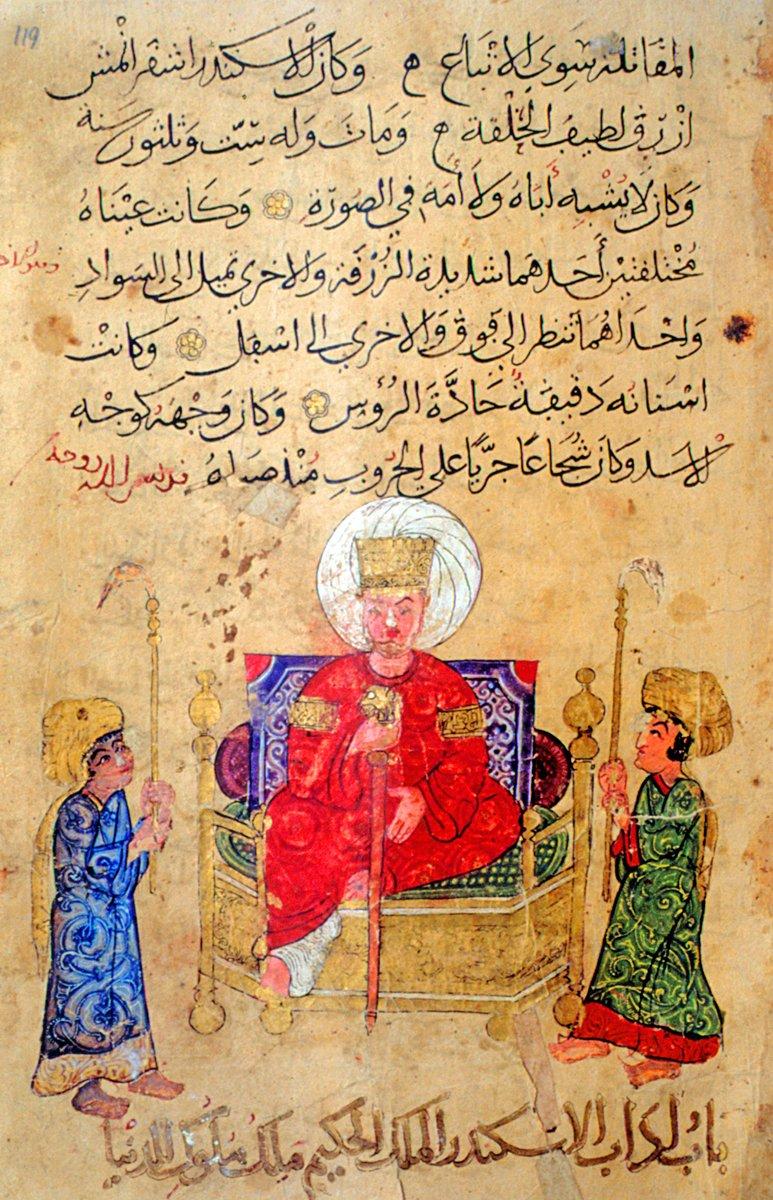 119
المقاتلة سوى الاتباع ه وكان الاسكندر اشقر انمش
ازرق لطيف الخلقة ه ومات وله ستّ وثلثون سنة
وكان لا يُشْبِه أَبَاهُ ولا أُمَّه في الصورة وكانت عيناهُ
مُختلفتين أَحَدهما شديدة الزُرْقة والاخرى تميل الى السوادِ
واحداهما تنظر الى فوق والاخرى الى اسفل وكانت
اسنانه دقيقة حادَّةَ الرُؤُسِ وكان وجْهه كوجْهِ
الاسد وكان شُجَاعًا جريًّا على الحُروبِ مُنْذ صباهُ قدس الله روحه
باب اداب الاسكندر الملك الحكيم ملك ملوك الدنيا